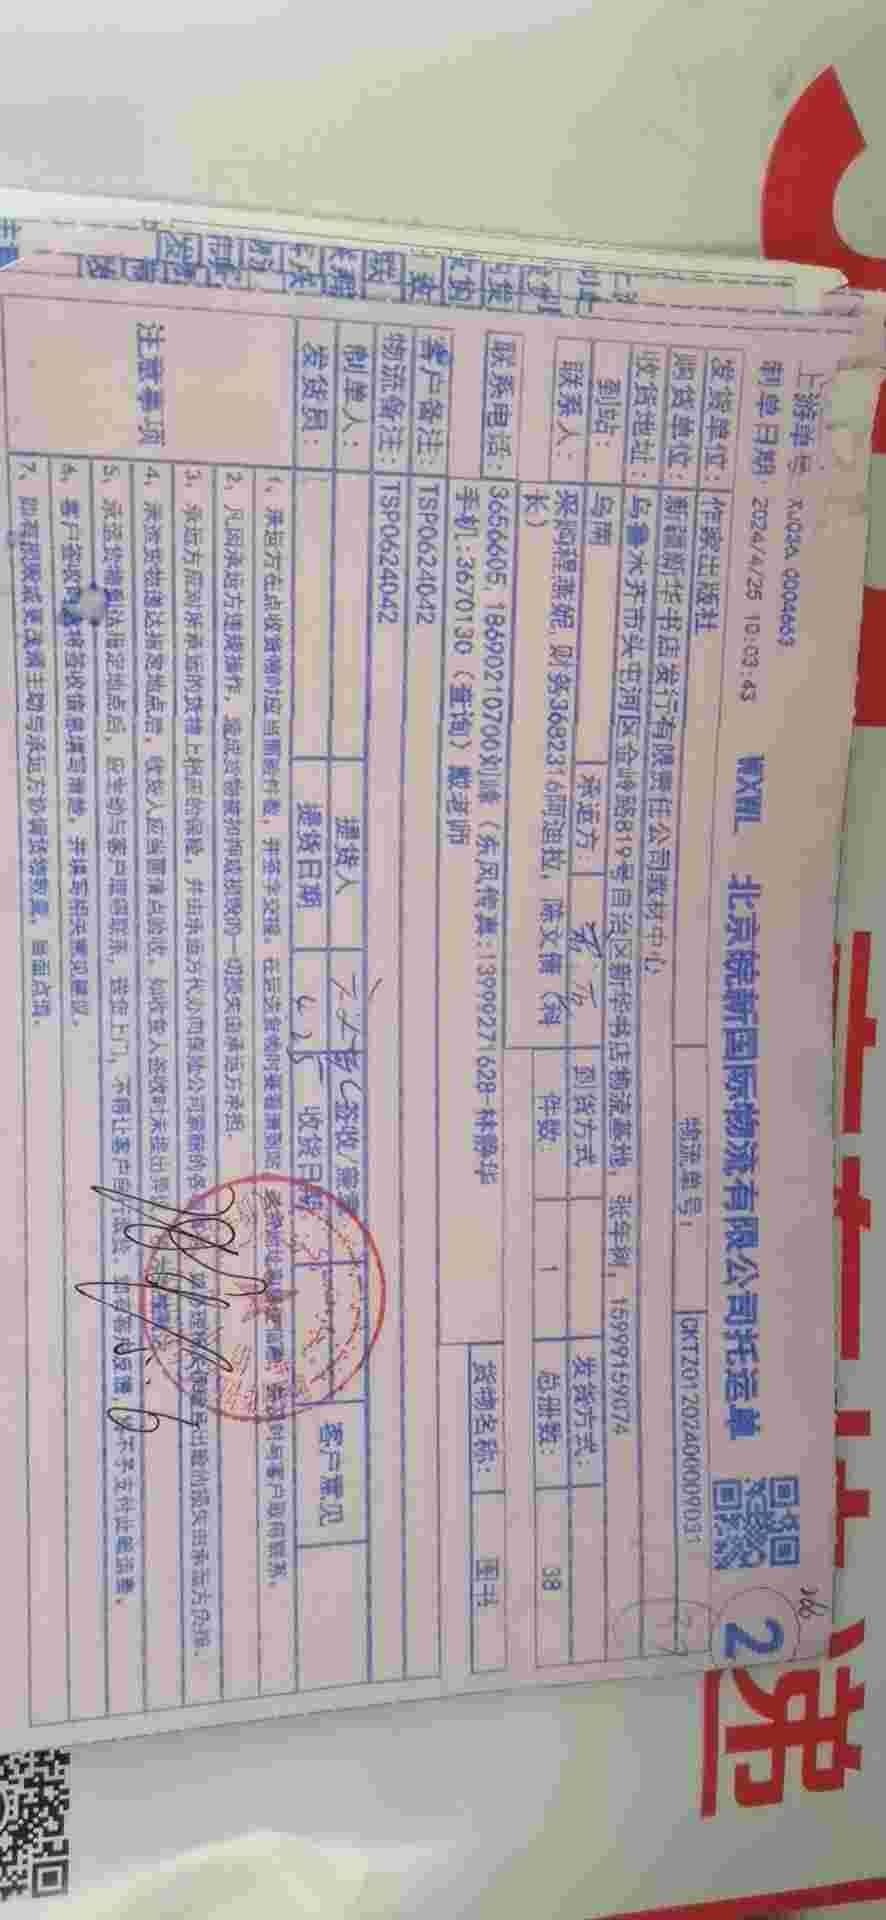 上游单号 XJ03A 0004663
制单日期: 2024/4/25 10:03:43
WXWL 北京皖新国际物流有限公司托运单
2
物流单号: CKTZ01202400009031
发货单位: 作家出版社
购货单位: 新疆新华书店发行有限责任公司教材中心
收货地址: 乌鲁木齐市头屯河区金岭路819号自治区新华书店物流基地, 张年树, 15999159074
到站: 乌南 承运方: 到货方式 发货方式:
联系人: 采购程燕妮, 财务3682316阿迪拉, 陈文倩 (科长) 件数: 1 总册数: 38
联系电话: 3656605, 18690210700刘峰 (东风传真:13999271628-林静华 手机:3670130 (查询) 戴老师 货物名称: 图书
客户备注: TSP0624042
物流备注: TSP0624042
制单人: 提货人 签收/盖章 客户意见
发货员: 提货日期 4.25 收货日期
注意事项
1、承运方在点收货物时应当面验件数, 并签字交接。
2、凡因承运方违规操作, 造成货物被扣押或损毁的一切损失由承运方承担.
3、承运方应对所承运的货物上相应的保险, 并由承运方代办向保险公司索赔的各
4、承运货物送达指定地点后, 收货人应当面清点验收, 如收货人签收时未提出异
5、承运货物到达指定地点后, 应主动与客户取得联系, 送货上门, 不得让客户自行
6、客户签收时请将签收信息填写清楚, 并填写相关意见建议.
7、如有拒收或更改请主动与承运方协调货物数量, 当面点清.